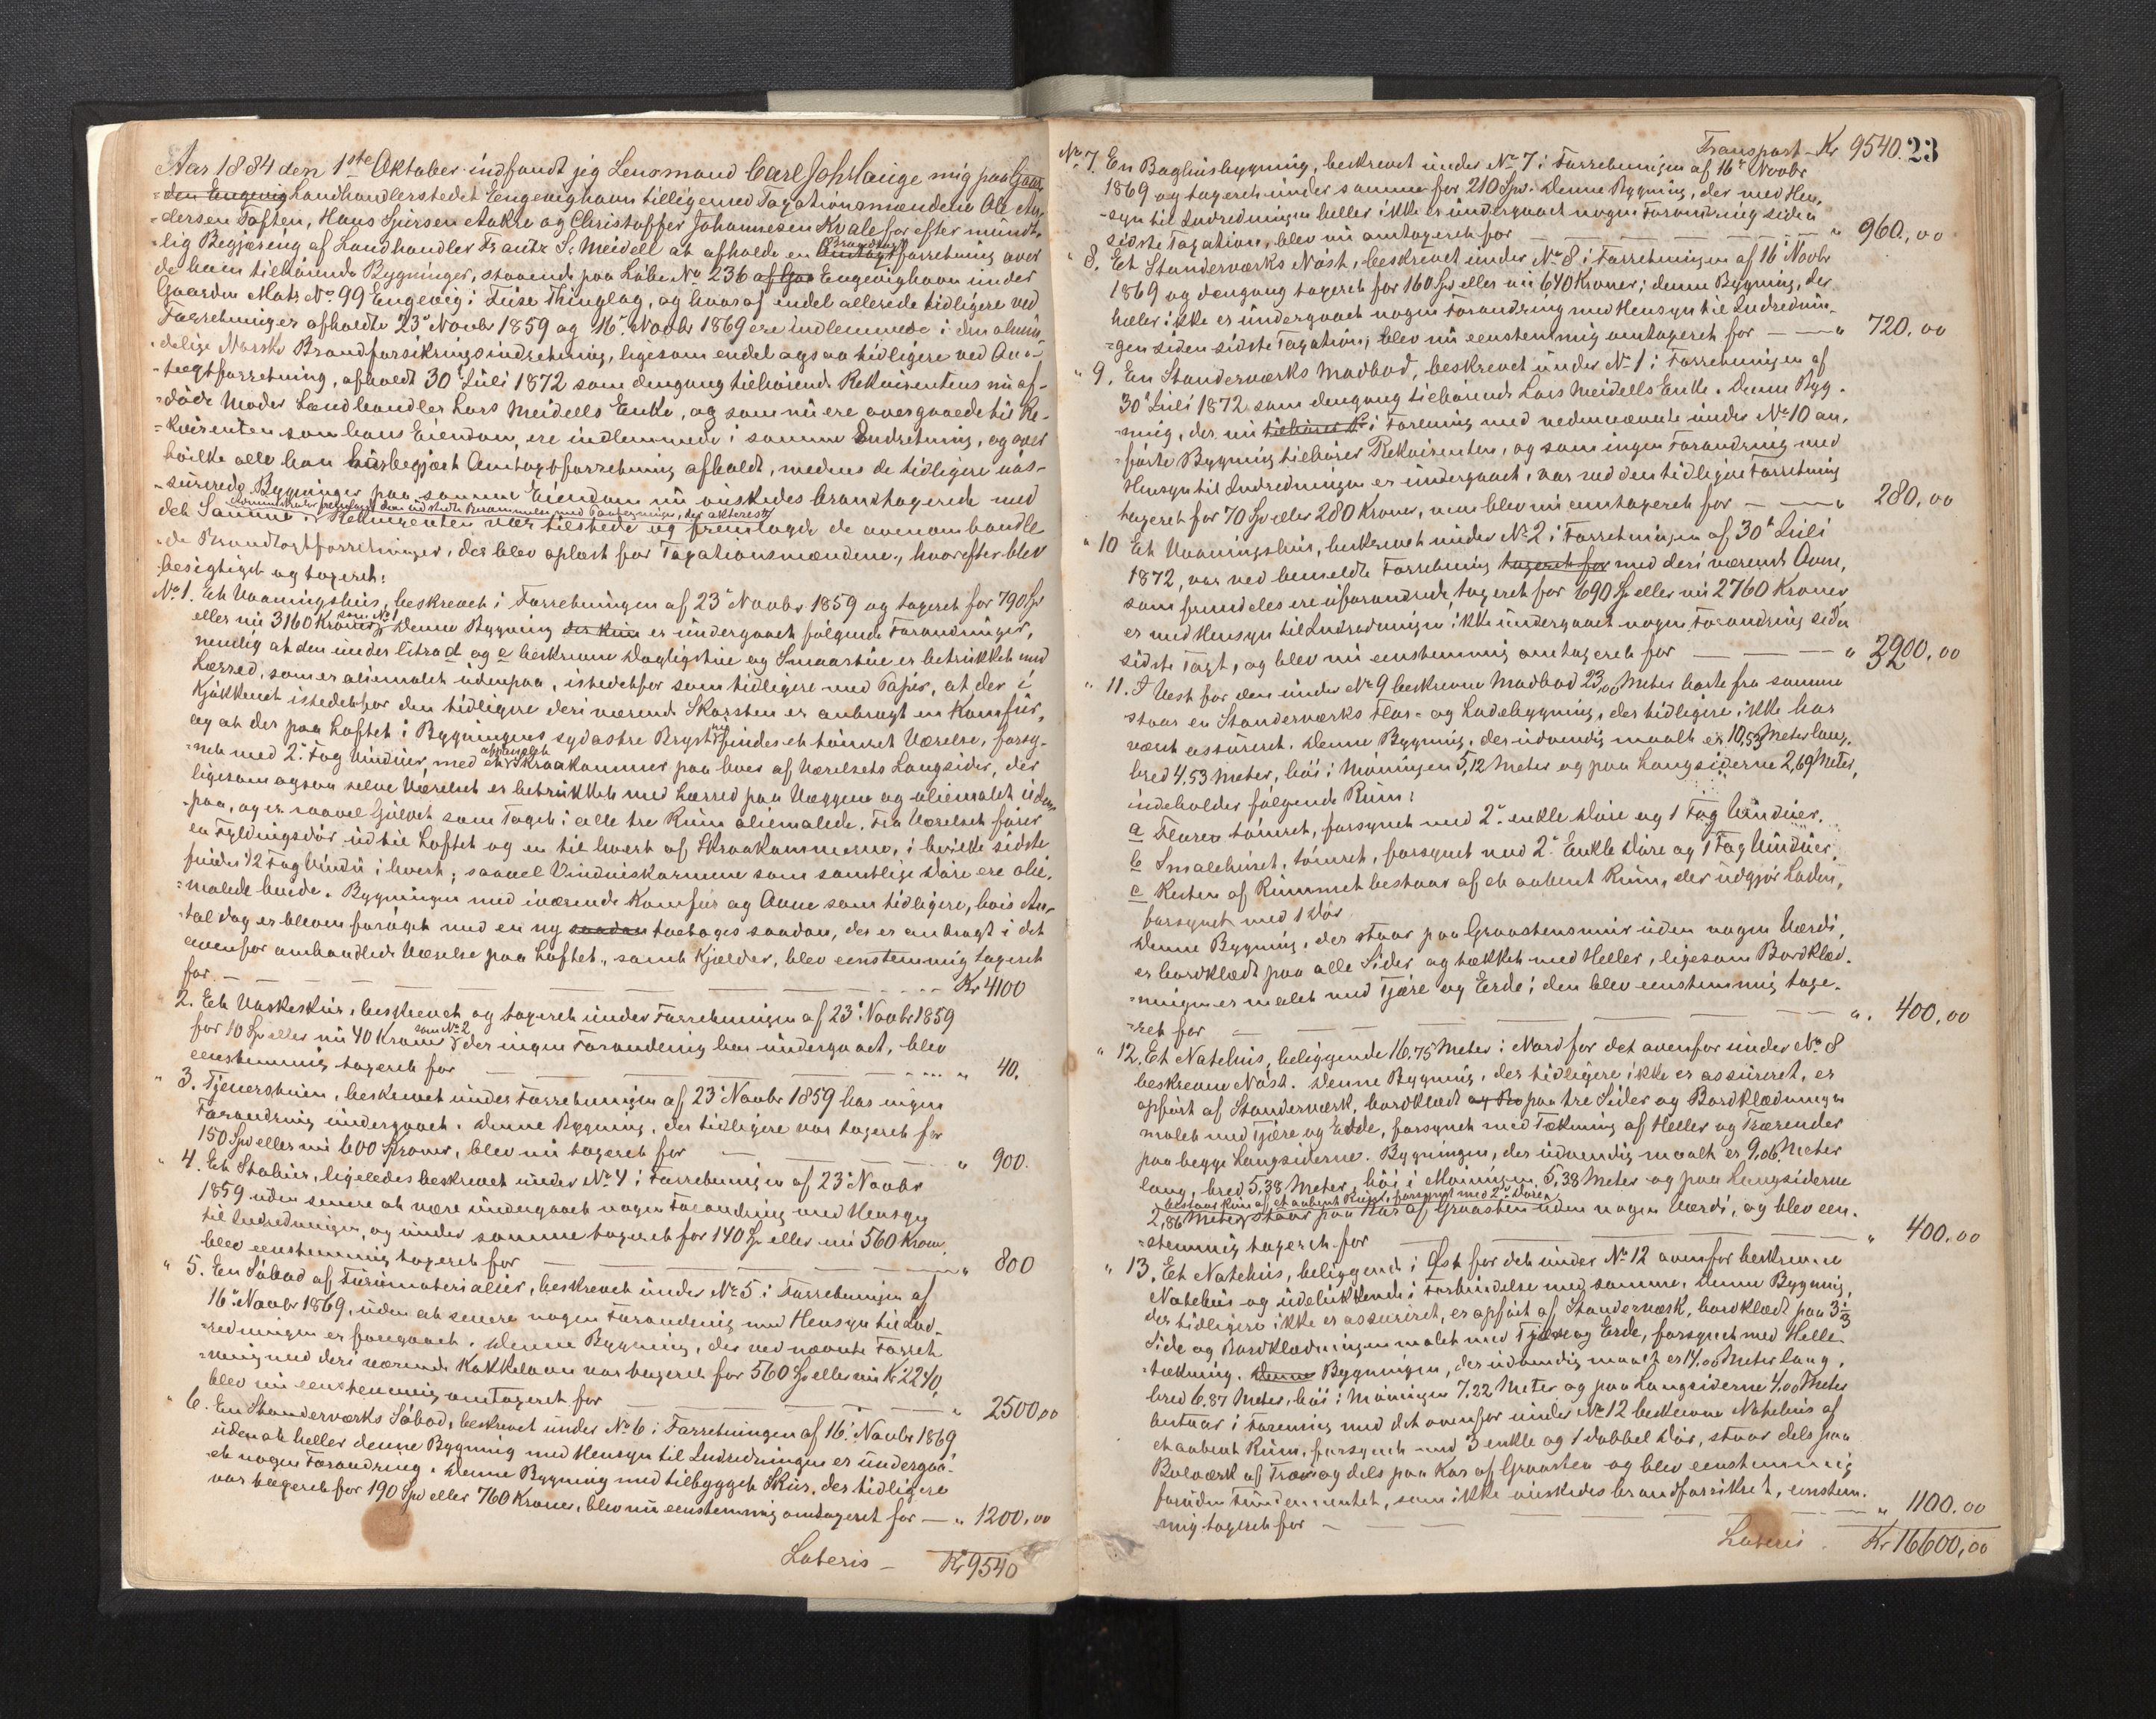 Aar 1884 den 1ste Oktober indfandt jeg Lensmand Carl Joh Lange mig paa Gaar-
den Engevig Landhandlerstedet Engevighavn tilligemed Taxationsmændene Ole An-
dersen Toften, Hans Sjursen Aakre og Christoffer Johannesen Kvale for efter mundt-
lig Begjæring af Landhandler Frantz S. Meidell at afholde en Omtaxt Brandtaxt forretning over
de ham tilhørende Bygninger, staaende paa Løbe No 236 af Gaa Engevighavn under
Gaarden Matr No 99 Engevig i Tuse Thinglag, og hvoraf endel allerede tidligere ved
Forretninger afholdte 23de Novbr 1859 og 16de Novbr 1869 ere indlemmede i den almin-
delige Norske Brandforsikringsindretning, ligesom endel ogsaa tidligere ved
taxtforretning, afholdt 30te Juli 1872 som dengang tilhørende Rekvirentens nu af-
døde Moder Landhandler Lars Meidells Enke, og som nu ere overgaaede til Re-
kvirenten som hans Eiendom, ere indlemmede i samme Indretning, og over
hvilke alle han har begjært Omtaxtforretning afholdt, medens de tidligere uas-
surerede Bygninger paa samme Eiendom nu ønskedes brandtaxerede med
det Samme. Rekvirenten var tilstede og fremlagde de ovenomhandle-
de Brandtaxtforretninger, der blev oplæst for Taxationsmændene, hvorefter blev
besigtiget og taxeret:
No 1. Et Vaaningshus, beskrevet i Forretningen af 23de Novbr 1859 og taxeret for 790 Spd
eller nu 3160 Kroner som No 1. Denne Bygning der kun er undergaaet følgende Forandringer,
nemlig at den under Litra d og e beskrevne Dagligstue og Smaastue er betrukket med
Lærred, som er oliemalet udenpaa, istedetfor som tidligere med Tapet, at der i
Kjøkkenet istedetfor den tidligere deri værende Skorsten er anbragt en Komfur,
og at der paa Loftet i Bygningens sydøstre Bryst nu findes et tømret Værelse, forsy-
net med 2de Fag Vinduer, med et oppanelet Skraakammer paa hver af Værelsets Langsider, der
ligesom ogsaa selve Værelset er betrukket med Lærred paa Væggene og oliemalet uden-
paa, og er saavel Gulvet som Taget i alle tre Rum oliemalede. Fra Værelset fører
en Fyldningsdør ud til Loftet og en til hvert af Skraakammerne, i hvilke sidste
findes 1/2 Fag Vindu i hvert; saavel Vindueskarmene som samtlige Døre ere olie-
malede hvide. Bygningen med iværende Komfur og Ovne som tidligere, hvis An-
tal dog er bleven forøget med en ny saadan toetages saadan, der er anbragt i det
ovenfor omhandlede Værelse paa Loftet, samt Kjælder, blev eenstemmig taxeret
for — Kr 4100
2. Et Vaskeskur, beskrevet og taxeret under Forretningen af 23de Novbr 1859
for 10 Spd eller nu 40 Kroner som No 2, der ingen Forandring har undergaaet, blev
eenstemmig taxeret for — " 40.
" 3. Tjenershuen, beskrevet under Forretningen af 23de Novbr 1859 har ingen
Forandring undergaaet. Denne Bygning, der tidligere var taxeret for
150 Spd eller nu 600 Kroner, blev nu taxeret for — " 900.
" 4. Et Stabur, ligeledes beskrevet under No 4 i Forretningen af 23de Novbr
1859 uden senere at være undergaaet nogen Forandring med Hensyn
til Indredningen, og under samme taxeret for 140 Spd eller nu 560 Kroner,
blev eenstemmig taxeret for — " 800
" 5. En Søbod af Furumaterialier, beskrevet under No 5 i Forretningen af
16de Novbr 1869, uden at senere nogen Forandring med Hensyn til Ind-
redningen er foregaaet. Denne Bygning, der ved nævnte Forret-
ning med deri værende Kakkelovn var taxeret for 560 Spd eller nu Kr 2240,
blev nu eenstemmig omtaxeret for — " 2500,00
" 6. En Standerværks Søbod, beskrevet under No 6 i Forretningen af 16de Novbr 1869,
uden at heller denne Bygning med Hensyn til Indredningen er undergaa-
et nogen Forandring. Denne Bygning med tilbygget Skur, der tidligere
var taxeret for 190 Spd eller 760 Kroner, blev nu eenstemmig omtaxeret for — " 1200,00
Lateris — Kr 9540
Transport — Kr 9540. 23
No 7. En Baghusbygning, beskrevet under No 7 i Forretningen af 16de Novbr
1869 og taxeret under samme for 210 Spd. Denne Bygning, der med Hen-
syn til Indredningen heller ikke er undergaaet nogen Forandring siden
sidste Taxation, blev nu omtaxeret for — " 960,00
" 8. Et Standerværks Nøst, beskrevet under No 8 i Forretningen af 16de Novbr
1869 og dengang taxeret for 160 Spd eller nu 640 Kroner; denne Bygning, der
heller ikke er undergaaet nogen Forandring med Hensyn til Indrednin-
gen siden sidste Taxation, blev nu eenstemmig omtaxeret for — " 720,00
" 9. En Standerværks Madbod, beskrevet under No 1 i Forretningen af
30te Juli 1872 som dengang tilhørende Lars Meidells Enke. Denne Byg-
ning, der nu tilhører R i Forening med nedennævnte under No 10 an-
førte Bygning tilhører Rekvirenten, og som ingen Forandring med
Hensyn til Indredningen er undergaaet, var ved den tidligere Forretning
taxeret for 70 Spd eller 280 Kroner, men blev nu omtaxeret for — " 280,00
" 10 Et Vaaningshus, beskrevet under No 2 i Forretningen af 30te Juli
1872, var ved bemeldte Forretning taxeret for med deri værende Ovne,
som fremdeles ere uforandrede, taxeret for 690 Spd eller nu 2760 Kroner
er med Hensyn til Indredningen ikke undergaaet nogen Forandring siden
sidste Taxt, og blev nu eenstemmig omtaxeret for — " 3200,00
" 11. I Vest for den under No 9 beskrevne Madbod 23,00 Meter borte fra samme
staar en Standerværks Flor- og Ladebygning, der tidligere ikke har
været assureret. Denne Bygning, der udvendig maalt er 10,53 Meter lang,
bred 4,53 Meter, høi i Møningen 5,12 Meter og paa Langsiderne 2,69 Meter,
indeholder følgende Rum:
a Floren tømret, forsynet med 2de enkle Døre og 1 Fag Vinduer.
b Smalehuset, tømret, forsynet med 2de Enkle Døre og 1 Fag Vinduer,
c Resten af Rummet bestaar af et aabent Rum, der udgjør Laden,
forsynet med 1 Dør.
Denne Bygning, der staar paa Graastensmur uden nogen Værdi,
er bordklædt paa alle Sider og tækket med Heller, ligesom Bordklæd-
ningen er malet med Tjære og Erde; den blev eenstemmig taxe-
ret for — " 400,00
" 12. Et Notehus, beliggende 16.75 Meter i Nord for det ovenfor under No 8
beskrevne Nøst. Denne Bygning, der tidligere ikke er assureret, er
opført af Standerværk, bordklædt paa tre Sider og Bordklædningen
malet med Tjære og Erde, forsynet med Tækning af Heller og Trærender
paa begge Langsiderne. Bygningen, der udvendig maalt er 9,06 Meter
lang, bred 5,38 Meter, høi i Møningen 5,38 Meter og paa Langsiderne
2,86 Meter, bestaar kun af et aabent Rum, forsynet med 2de Døre, staar paa Kar af Graasten uden nogen Værdi, og blev een-
stemmig taxeret for — " 400,00
" 13. Et Notehus, beliggende i Øst for det under No 12 ovenfor beskrevne
Notehus og udelukkende i Forbindelse med samme. Denne Bygning,
der tidligere ikke er assureret, er opført af Standerværk, bordklædt paa 3
Side og Bordklædningen malet med Tjære og Erde, forsynet med Helle-
tækning. Denne Bygningen, der udvendig maalt er 14.00 Meter lang,
bred 6,87 Meter, høi i Møningen 7.22 Meter og paa Langsiderne 4,00 Meter
bestaar i Forening med det ovenfor under No 12 beskrevne Notehus af
et aabent Rum, forsynet med 3 enkle og 1 dobbel Dør, staar dels paa
Bolværk af Træ og dels paa Kar af Graasten og blev eenstemmig
foruden Fundamentet, som ikke ønskedes brandforsikret, eenstem-
mig taxeret for — " 1100.00
Lateris. Kr 16600,00